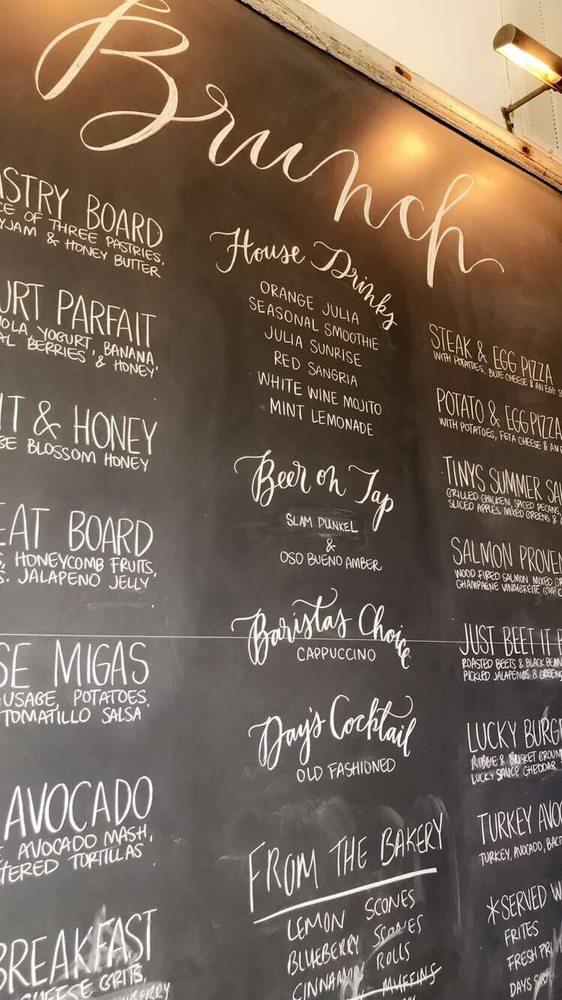 Brunch
ASTRY BOARD
CE OF THREE PASTRIES,
YJAM & HONEY BUTTER
URT PARFAIT
OLA, YOGURT, BANANA
AL BERRIES & HONEY
IT & HONEY
BE BLOSSOM HONEY
EAT BOARD
S, HONEYCOMB FRUITS,
S. JALAPENO JELLY
SE MIGAS
USAGE, POTATOES,
TOMATILLO SALSA
AVOCADO
E AVOCADO MASH,
TERED TORTILLAS
BREAKFAST
CHEESE GRITS,
House Drinks
ORANGE JULIA
SEASONAL SMOOTHIE
JULIA SUNRISE
RED SANGRIA
WHITE WINE MOJITO
MINT LEMONADE
Beer on Tap
SLAM DUNKEL
&
OSO BUENO AMBER
Baristas Choice
CAPPUCCINO
Day's Cocktail
OLD FASHIONED
FROM THE BAKERY
LEMON SCONES
BLUEBERRY SCONES
CINNAMON ROLLS
MUFFINS
STEAK & EGG PIZZA
WITH POTATOES, BLUE CHEESE & AN EGG
POTATO & EGG PIZZA
WITH POTATOES, FETA CHEESE & AN
TINYS SUMMER SA
GRILLED CHICKEN, SPICED PECANS,
SLICED APPLES, MIXED GREENS &
SALMON PROVEN
WOOD FIRED SALMON MIXED
CHAMPAGNE VINAIGRETTE
JUST BEET IT B
ROASTED BEETS & BLACK BEAN
PICKLED JALAPENOS & GREENS
LUCKY BURG
RIBEYE & BRISKET GROUN
LUCKY SAUCE CHEDDAR
TURKEY AVO
TURKEY, AVOCADO, BAC
*SERVED W
FRITES
FRESH FR
DAYS